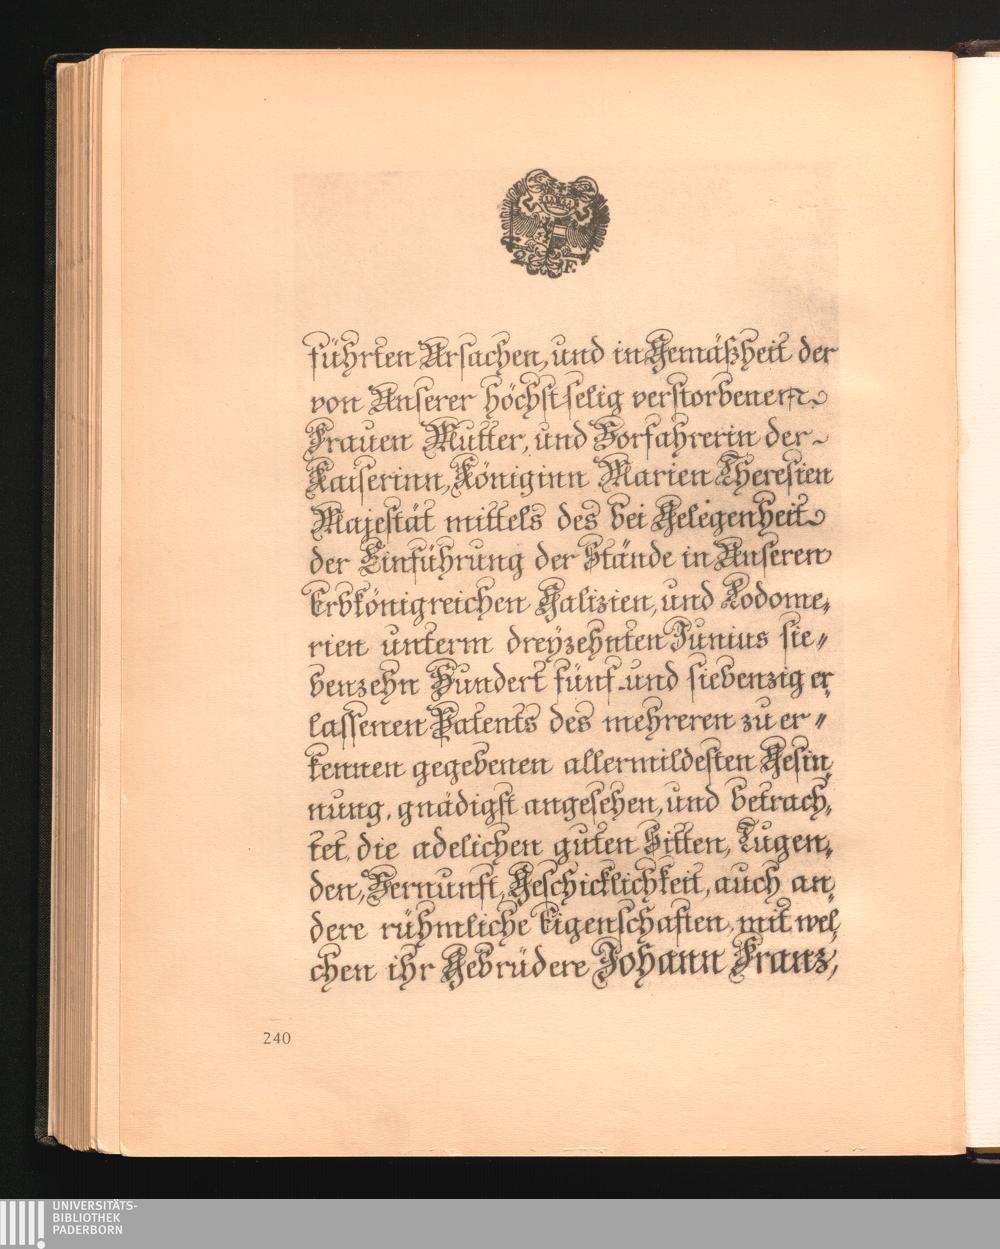 2 F.
führten Ursachen, und in Gemäßheit der
von Unserer höchstselig verstorbenen
Frauen Mutter, und Vorfahrerin der
Kaiserinn, Königinn Marien Theresien
Majestät mittels des bei Gelegenheit
der Einführung der Stände in Unseren
Erbkönigreichen Galizien, und Lodome„
rien unterm dreÿzehnten Junius sie„
benzehn Hundert fünf-und siebenzig er„
lassenen Patents des mehreren zu er„
kennen gegebenen allermildesten Gesin„
nung, gnädigst angesehen, und betrach„
tet, die adelichen guten Sitten, Tugen„
den, Vernunft, Geschicklichkeit, auch an„
dere rühmliche Eigenschaften, mit wel„
chen ihr Gebrüdere Johann Franz,
240
UNIVERSITÄTS-
BIBLIOTHEK
PADERBORN